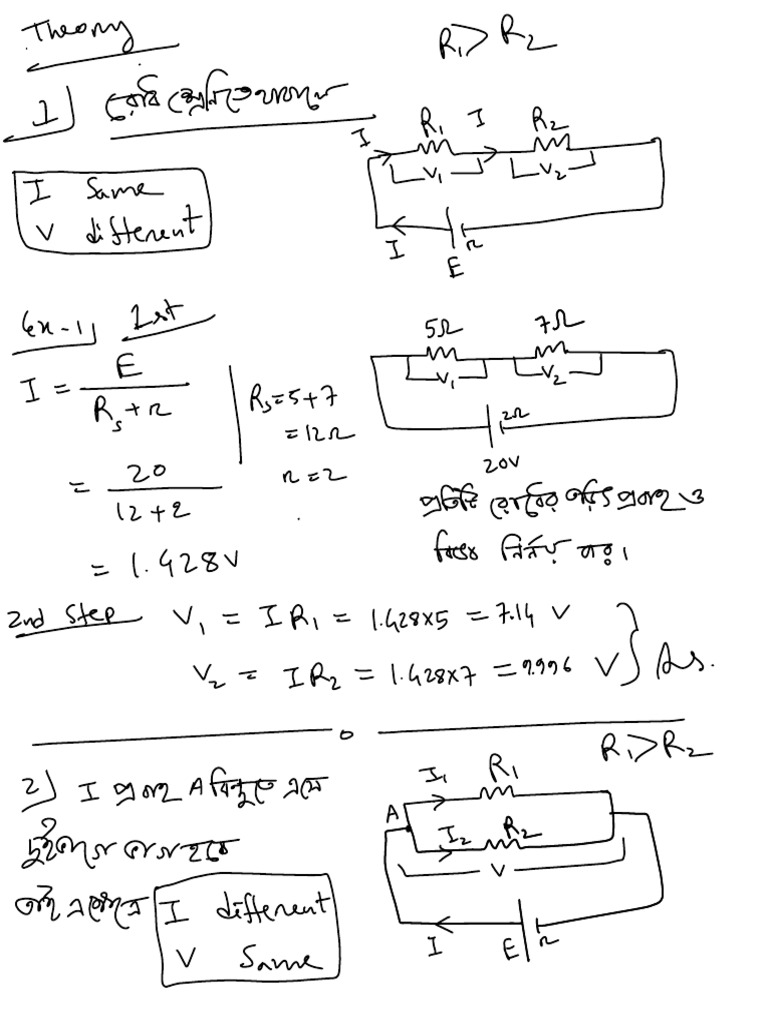 Theory
R₁ > R₂
1) রোধ শ্রেণিতে থাকলে
I Same
V different
I R₁ I R₂
V₁ V₂
I E r
Ex-1) 1st
5Ω 7Ω
V₁ V₂
2Ω
20V
I = E / (Rs + r)
Rs = 5 + 7
= 12Ω
r = 2
= 20 / (12 + 2)
= 1.428V
প্রতিটি রোধের তড়িৎ প্রবাহ ও
বিভব নির্ণয় কর।
2nd Step V₁ = IR₁ = 1.428×5 = 7.14 V
V₂ = IR₂ = 1.428×7 = 9.996 V } Ans.
R₁ > R₂
2) I প্রবাহ A বিন্দুতে এসে
দুইভাগে ভাগ হবে
তাই এক্ষেত্রে
I different
V Same
I₁ R₁
A
I₂ R₂
V
I E r